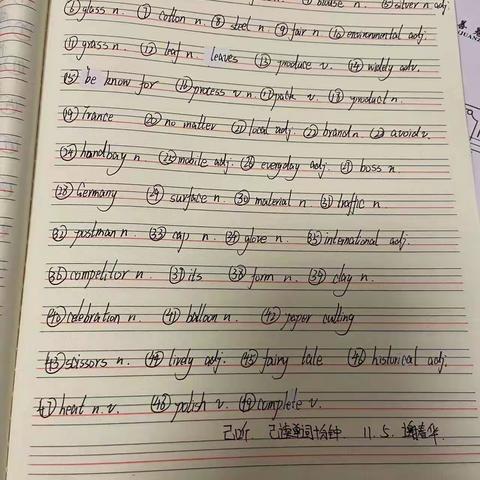 blouse n. ⑤silver n adj.
⑥glass n. ⑦cotton n. ⑧steel n. ⑨fair n ⑩environmental adj.
⑪grass n. ⑫leaf n. leaves ⑬produce v. ⑭widly adv.
⑮be know for ⑯process v n. ⑰pack v. ⑱product n.
⑲France ⑳no matter ㉑local adj. ㉒brand n. ㉓avoid v.
㉔handbag n. ㉕mobile adj. ㉖everyday adj. ㉗boss n.
㉘Germany ㉙surface n. ㉚material n. ㉛traffic n.
㉜postman n. ㉝cap n. ㉞glove n. ㉟international adj.
㊱competitor n. ㊲its ㊳form n. ㊴clay n.
㊵celebration n. ㊶balloon n. ㊷paper cutting
㊸scissors n. ㊹lively adj. ㊺fairy tale ㊻historical adj.
㊼heat n. v. ㊽polish v. ㊾complete v.
己听 己读单词十分钟 11. 5.